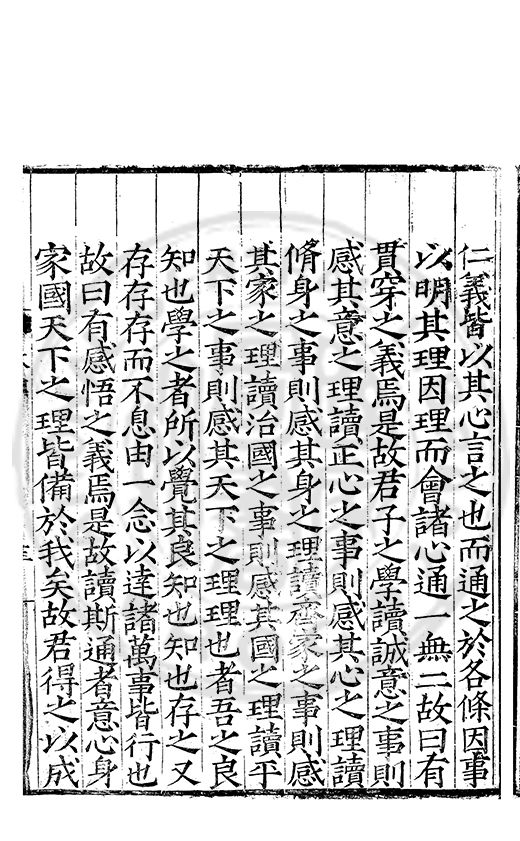 仁義皆以其心言之也而通之於各條因事
以明其理因理而會諸心通一無二故曰有
貫穿之義焉是故君子之學讀誠意之事則
感其意之理讀正心之事則感其心之理讀
脩身之事則感其身之理讀齊家之事則感
其家之理讀治國之事則感其國之理讀平
天下之事則感其天下之理理也者吾之良
知也學之者所以覺其良知也知也存之又
存存存而不息由一念以達諸萬事皆行也
故曰有感悟之義焉是故讀斯通者意心身
家國天下之理皆備於我矣故君得之以成